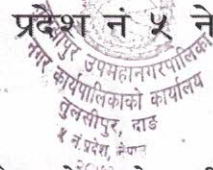 प्रदेश नं ५ ने
तुलसीपुर उपमहानगरपालिका
नगर कार्यपालिकाको कार्यालय
तुलसीपुर, दाङ
५ नं. प्रदेश, नेपाल